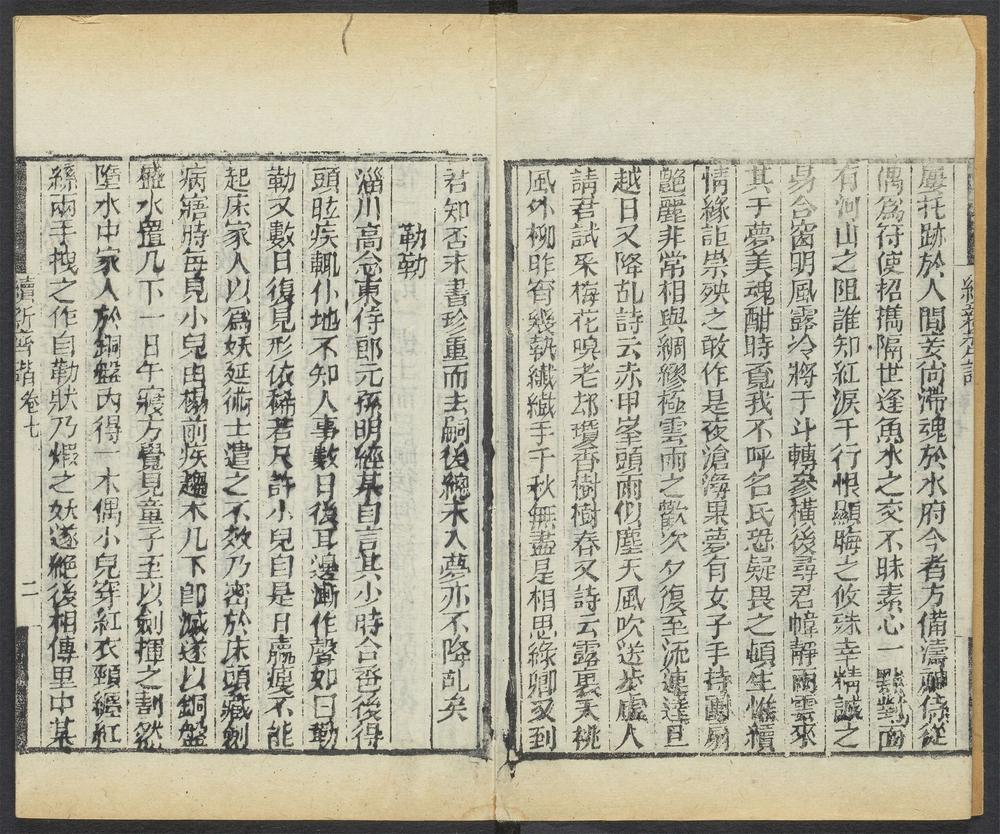 屢托跡於人間妾尙滯魂於水府今者方備濤神侍從
偶爲符使招攜隔世逢魚水之交不昧素心一點對面
有河山之阻誰知紅淚千行恨顯晦之攸殊幸精誠之
易合窗明風露冷將于斗轉參橫後尋君幃靜雨雲來
其于夢美魂酣時覓我不呼名氏恐疑畏之頓生惟續
情緣詎祟殃之敢作是夜滄海果夢有女子手持
艷麗非常相與綢繆極雲雨之歡次夕復至流連達旦
越日又降乩詩云赤甲峯頭雨似塵天風吹送步虛人
請君試釆梅花嗅老邨瓊香樹樹春又詩云露裏天桃
風外柳昨宵幾執纖纖手千秋無盡是相思綠卿又到
君知否末書珍重而去嗣後總不入夢亦不降乩矣
勒勒
淄川高念東侍郎元孫明經某自言其少時合巹後得
頭眩疾輒仆地不知人事數日後耳邊漸作聲如曰勒
勒又數日復見形依稀若尺許小兒自是日羸瘦不能
起床家人以爲妖延術士遣之不效乃密於床頭藏劍
病寤時每見小兒由榻前疾趨木几下卽滅遂以銅盤
盛水置几下一日午寢方覺見童子至以劍揮之劃然
墮水中家人於銅盤內得一木偶小兒穿紅衣頸纏紅
絲兩手拽之作自勒狀乃煅之妖遂絕後相傳里中某
續新齊諧 卷七
二